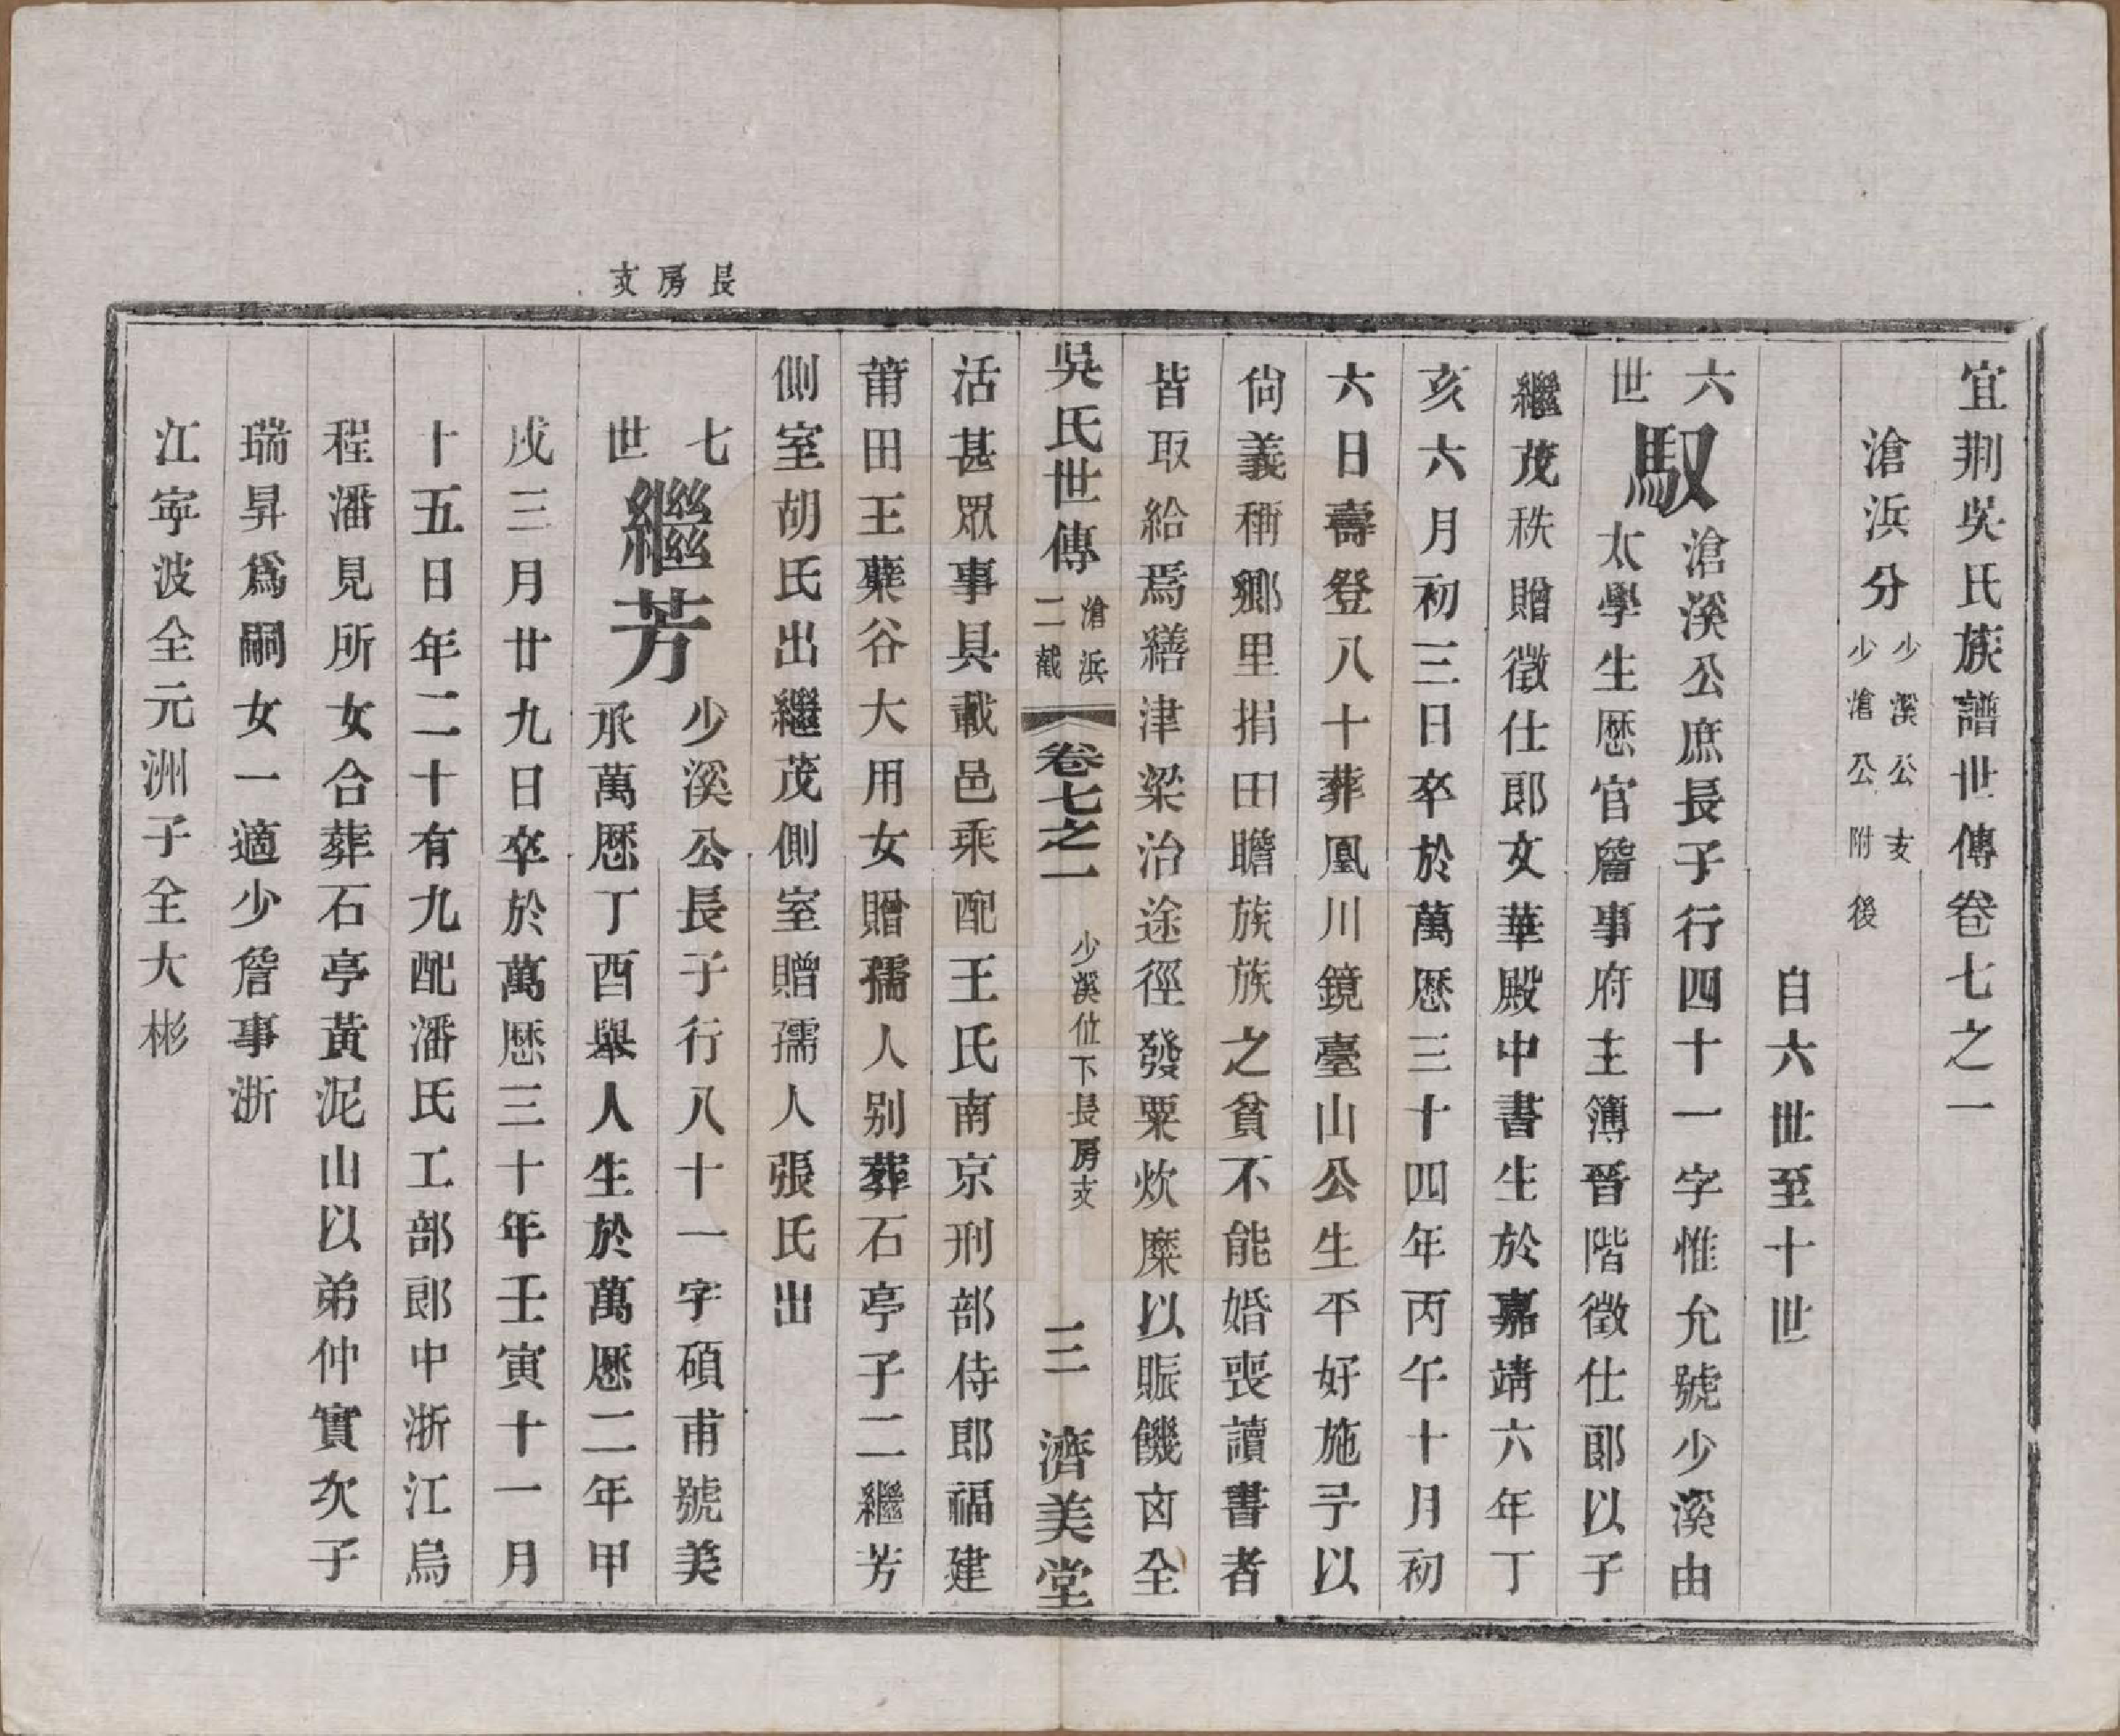 宜荆吳氏族譜世傳卷七之一
滄浜分 少溪公支
少滄公附後
自六世至十世
六世 馭 滄溪公庶長子行四十一字惟允號少溪由
太學生歴官詹事府主簿晉階徵仕郎以子
繼茂秩贈徵仕郎文華殿中書生於嘉靖六年丁
亥六月初三日卒於萬歴三十四年丙午十月初
六日壽登八十葬凰川鏡臺山公生平好施予以
尙義稱鄉里捐田贍族族之貧不能婚喪讀書者
皆取給焉繕津梁治途徑發粟炊糜以賑饑凶全
吳氏世傳 滄浜二截 卷七之一 少溪位下長房支 三 濟美堂
活甚眾事具載邑乘配王氏南京刑部侍郎福建
莆田王蘗谷大用女贈孺人别葬石亭子二繼芳
側室胡氏出繼茂側室贈孺人張氏出
長房支
七世 繼芳 少溪公長子行八十一字碩甫號美
承萬歴丁酉舉人生於萬歴二年甲
戌三月廿九日卒於萬歴三十年壬寅十一月
十五日年二十有九配潘氏工部郎中浙江烏
程潘見所女合葬石亭黃泥山以弟仲實次子
瑞昇爲嗣女一適少詹事浙
江寧波全元洲子全大彬